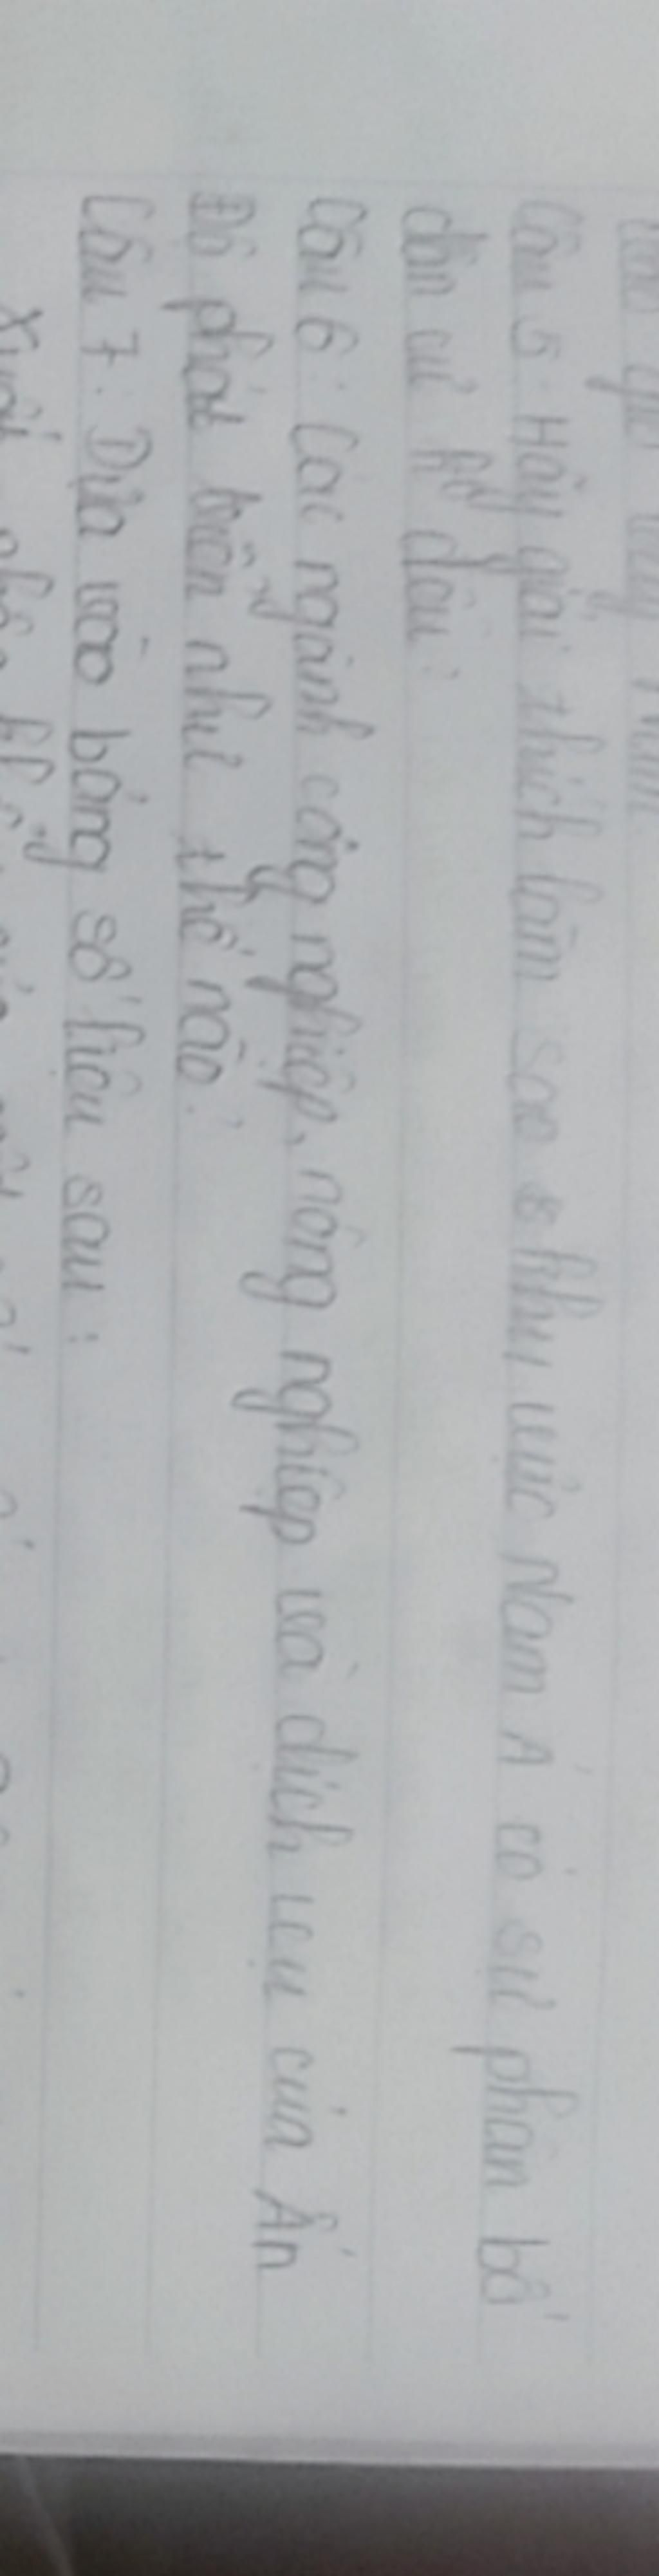 Câu 5. Hãy giải thích làm sao khu vực Nam Á có sự phân bố
dân cư k đều?
Câu 6: Các ngành công nghiệp, nông nghiệp và dịch vụ của Ấn
Độ phát triển như thế nào?
Câu 7. Dựa vào bảng số liệu sau: